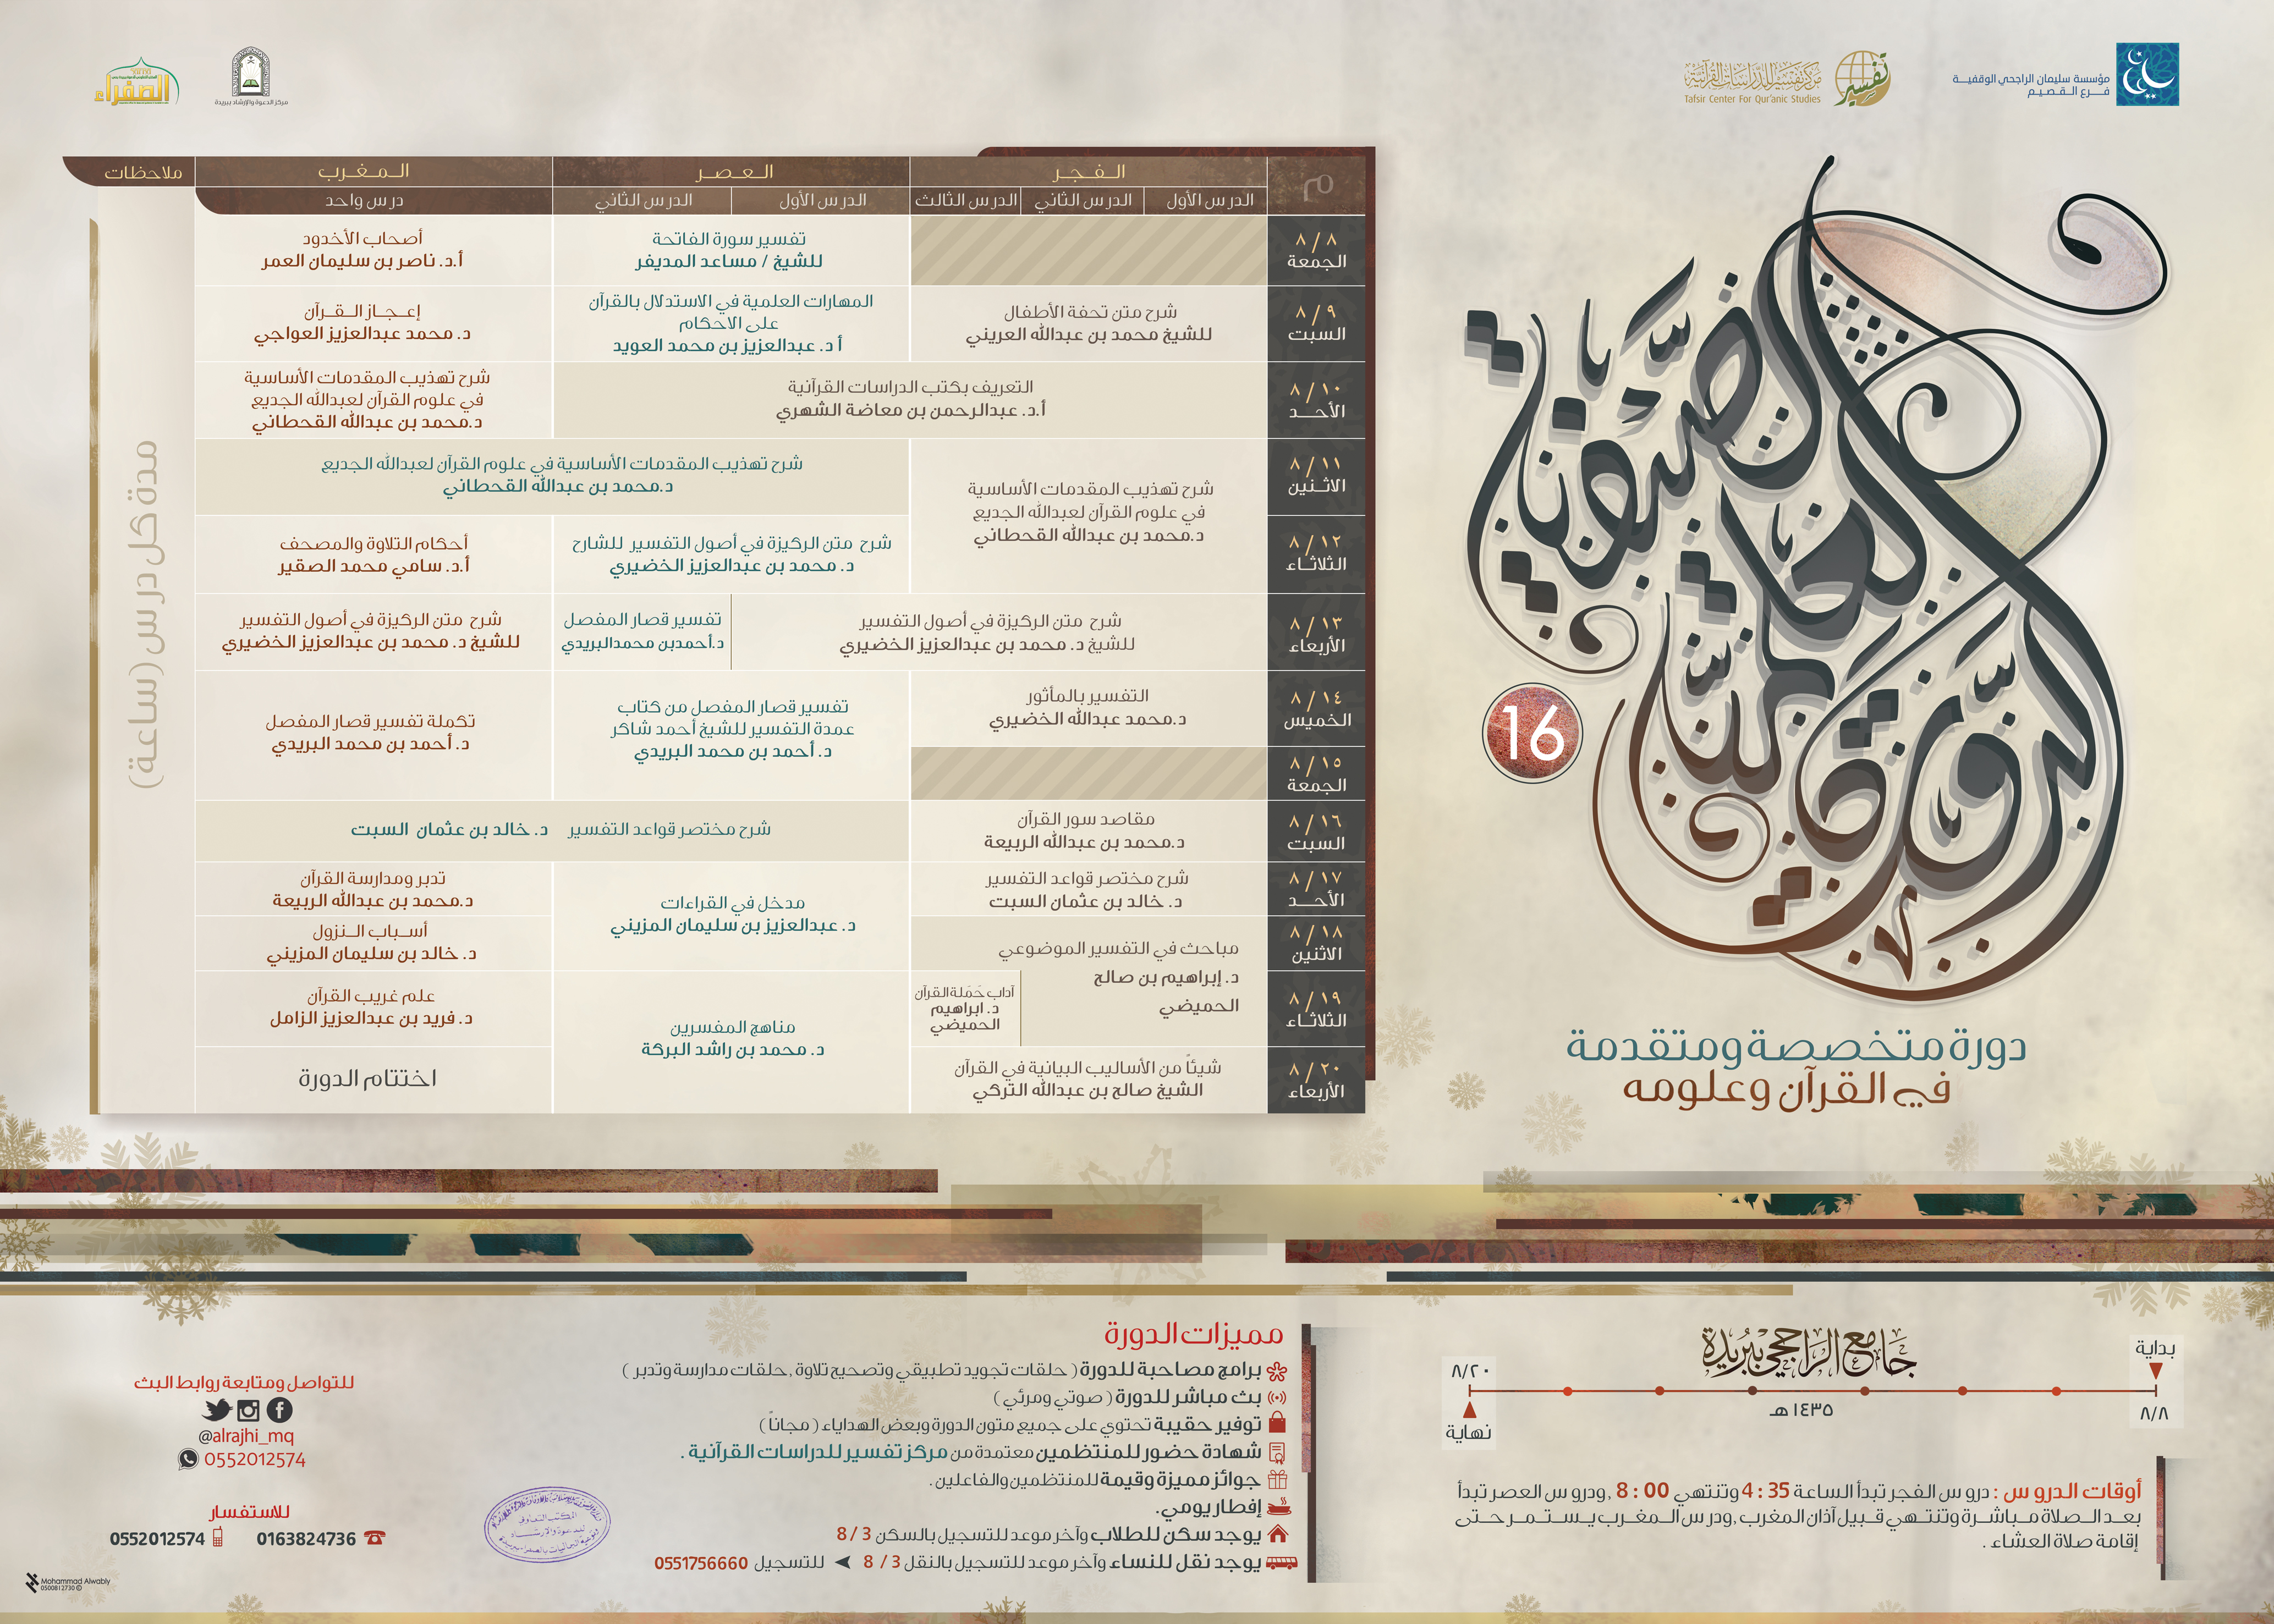 مؤسسة سليمان الراجحي الوقفيـــة
فــــرع الــقــصــيــم
تفسير
مركز تفسير للدراسات القرآنية
Tafsir Center For Qur'anic Studies
مركز الدعوة والإرشاد ببريدة
الصفراء
الدورة العلمية الصيفية
16
دورة متخصصة ومتقدمة
في القرآن وعلومه
م
الــفــجــر
الــعــصــر
الــمــغــرب
ملاحظات
الدرس الأول
الدرس الثاني
الدرس الثالث
الدرس الأول
الدرس الثاني
درس واحد
مدة كل درس (ساعة)
٨ / ٨
الجمعة
تفسير سورة الفاتحة
للشيخ / مساعد المديفر
أصحاب الأخدود
أ.د. ناصر بن سليمان العمر
٨ / ٩
السبت
شرح متن تحفة الأطفال
للشيخ محمد بن عبدالله العريني
المهارات العلمية في الاستدلال بالقرآن
على الاحكام
أ د. عبدالعزيز بن محمد العويد
إعــجــاز الــقــرآن
د. محمد عبدالعزيز العواجي
٨ / ١٠
الأحـــد
التعريف بكتب الدراسات القرآنية
أ.د. عبدالرحمن بن معاضة الشهري
شرح تهذيب المقدمات الأساسية
في علوم القرآن لعبدالله الجديع
د.محمد بن عبدالله القحطاني
٨ / ١١
الاثــنين
شرح تهذيب المقدمات الأساسية
في علوم القرآن لعبدالله الجديع
د.محمد بن عبدالله القحطاني
شرح تهذيب المقدمات الأساسية في علوم القرآن لعبدالله الجديع
د.محمد بن عبدالله القحطاني
٨ / ١٢
الثلاثــاء
شرح متن الركيزة في أصول التفسير للشارح
د. محمد بن عبدالعزيز الخضيري
أحكام التلاوة والمصحف
أ.د. سامي محمد الصقير
٨ / ١٣
الأربعاء
شرح متن الركيزة في أصول التفسير
للشيخ د. محمد بن عبدالعزيز الخضيري
تفسير قصار المفصل
د.أحمدبن محمدالبريدي
شرح متن الركيزة في أصول التفسير
للشيخ د. محمد بن عبدالعزيز الخضيري
٨ / ١٤
الخميس
التفسير بالمأثور
د.محمد عبدالله الخضيري
تفسير قصار المفصل من كتاب
عمدة التفسير للشيخ أحمد شاكر
د. أحمد بن محمد البريدي
تكملة تفسير قصار المفصل
د. أحمد بن محمد البريدي
٨ / ١٥
الجمعة
٨ / ١٦
السبت
مقاصد سور القرآن
د.محمد بن عبدالله الربيعة
شرح مختصر قواعد التفسير د. خالد بن عثمان السبت
٨ / ١٧
الأحـــد
شرح مختصر قواعد التفسير
د. خالد بن عثمان السبت
مدخل في القراءات
د. عبدالعزيز بن سليمان المزيني
تدبر ومدارسة القرآن
د.محمد بن عبدالله الربيعة
٨ / ١٨
الاثنين
مباحث في التفسير الموضوعي
د. إبراهيم بن صالح
الحميضي
أســباب الــنزول
د. خالد بن سليمان المزيني
٨ / ١٩
الثلاثــاء
آداب حَمَلة القرآن
د. ابراهيم
الحميضي
مناهج المفسرين
د. محمد بن راشد البركة
علم غريب القرآن
د. فريد بن عبدالعزيز الزامل
٨ / ٢٠
الأربعاء
شيئاً من الأساليب البيانية في القرآن
الشيخ صالح بن عبدالله التركي
اختتام الدورة
جامع الراجحي ببريدة
بداية
٨/٨
١٤٣٥ هـ
٨/٢٠
نهاية
أوقات الدروس : دروس الفجر تبدأ الساعة 4:35 وتنتهي 8:00 ,ودروس العصر تبدأ
بعد الــصلاة مــباشــرة وتنتــهي قــبيل آذان المغرب ,ودرس الــمغــرب يــســتــمــر حــتــى
إقامة صلاة العشاء .
مميزات الدورة
برامج مصاحبة للدورة ( حلقات تجويد تطبيقي وتصحيح تلاوة ,حلقات مدارسة وتدبر )
بث مباشر للدورة ( صوتي ومرئي )
توفير حقيبة تحتوي على جميع متون الدورة وبعض الهداياء ( مجاناً )
شهادة حضور للمنتظمين معتمدة من مركز تفسير للدراسات القرآنية .
جوائز مميزة وقيمة للمنتظمين والفاعلين .
إفطار يومي.
يوجد سكن للطلاب وآخر موعد للتسجيل بالسكن 8/3
يوجد نقل للنساء وآخر موعد للتسجيل بالنقل 8 / 3 للتسجيل 0551756660
للتواصل ومتابعة روابط البث
@alrajhi_mq
0552012574
للاستفسار
0163824736
0552012574
المكتب التعاوني
للدعوة والإرشاد
Mohammad Alwably
0500812730 ©